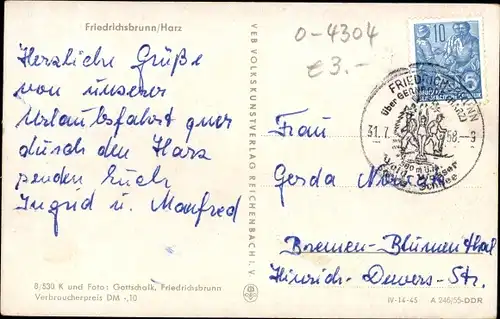 Friedrichsbrunn/Harz
0-4304
€ 3.-
Herzliche Grüße
von unserer
Urlaubsfahrt quer
durch den Harz
senden Euch
Ingrid u. Manfred
VEB VOLKSKUNSTVERLAG REICHENBACH I. V.
10
FRIEDRICHSBRUNN
über GERNRODE
31.7. 58.-9
Wald Wasser
Schnee
Frau
Gerda
Bremen-Blumenthal
Hinrich-Dewers-Str.
8/630 K und Foto: Gottschalk, Friedrichsbrunn
Verbraucherpreis DM -,10
IV-14-45 A 246/55-DDR